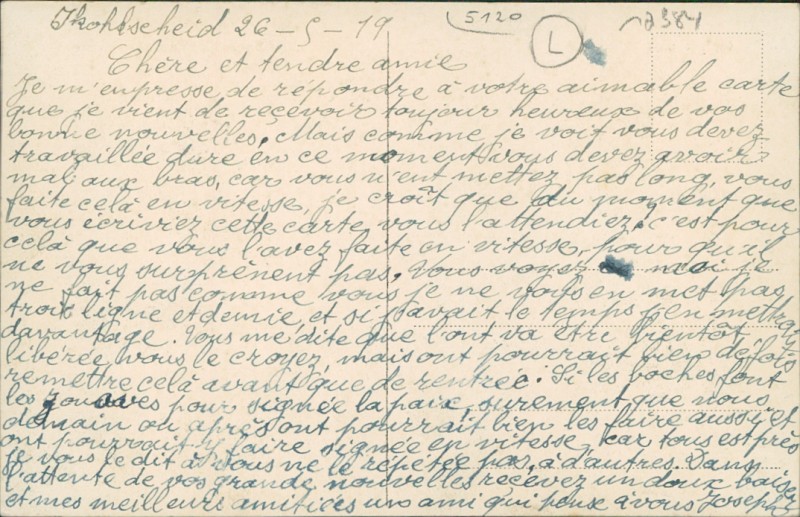 Kohlscheid 26-5-19
5120
L
Chère et tendre amie
Je m'enpresse de répondre à votre aimable carte
que je vient de reçevoir toujour heureux de vos
bonne nouvelles, Mais comme je voit vous devez
travaillée dure en ce moment vous devez avoir
mal aux bras, car vous n'ent mettez pas long, vous
faite celà en vitesse, je croît que du moment que
vous écriviez cette carte vous l'attendiez, c'est pour
celà que vous l'avez faite en vitesse, pour qu'il
ne vous surprênent pas. Vous voyez moi je
ne fait pas comme vous je ne vous en met pas
trois ligne et demie, et si j'avait le temps j'en mettrai
davantage. Vous me dite que l'ont va être bientôt
libérée, vous le croyez, mais ont pourrait bien de fois
remettre celà avant que de rentrée. Si les boches font
les zouaves pour signée la paix, surement que nous
demain ou après ont pourrait bien les faire aussi, et
ont pourrait y faire signée en vitesse, car tous est près
je vous le dit à vous ne le répétée pas, à d'autres. Dans
l'attente de vos grande nouvelles recevez un doux baiser
et mes meilleurs amitiées un ami qui pense à vous Joseph